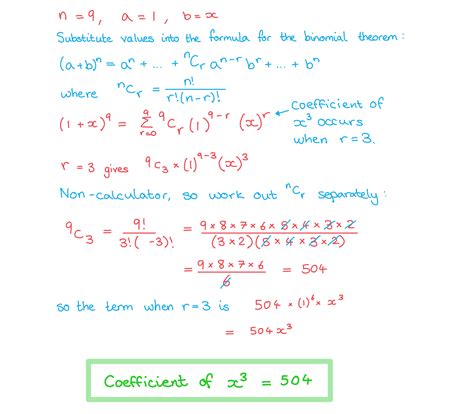 n = 9, a = 1, b = x
Substitute values into the formula for the binomial theorem :
(a+b)ⁿ = aⁿ + ... + ⁿCᵣ aⁿ⁻ʳ bʳ + ... + bⁿ
where ⁿCᵣ = n! / r!(n-r)!
(1 + x)⁹ = ⁹Σᵣ₌₀ ⁹Cᵣ (1)⁹⁻ʳ (x)ʳ ← Coefficient of x³ occurs when r = 3.
r = 3 gives ⁹C₃ × (1)⁹⁻³ (x)³
Non-calculator, so work out ⁿCᵣ separately :
⁹C₃ = 9! / 3!( -3)! = 9 × 8 × 7 × 6 × 5 × 4 × 3 × 2 / (3 × 2)(5 × 4 × 3 × 2)
= 9 × 8 × 7 × 6 / 6 = 504
so the term when r = 3 is 504 × (1)⁶ × x³
= 504 x³
Coefficient of x³ = 504